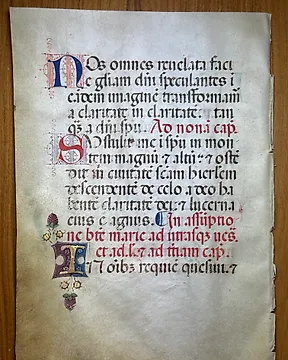 Nos omnes reuelata faci
e gliam dni speculantes i
eadem imagine transformam
a claritate in claritate: tan
q; a dni spu. Ad nona cap.
Sustulit me i spu in mon
tem magnu & altu: & oste
dit m ciuitate scam hierlem
descendente de celo a deo ha
bente claritate dei: & lucerna
eius e agnus. In assuptio
ne bte marie ad utrasq; ues.
et ad. l. & ad tciam cap.
In oibs requie quesiui. &